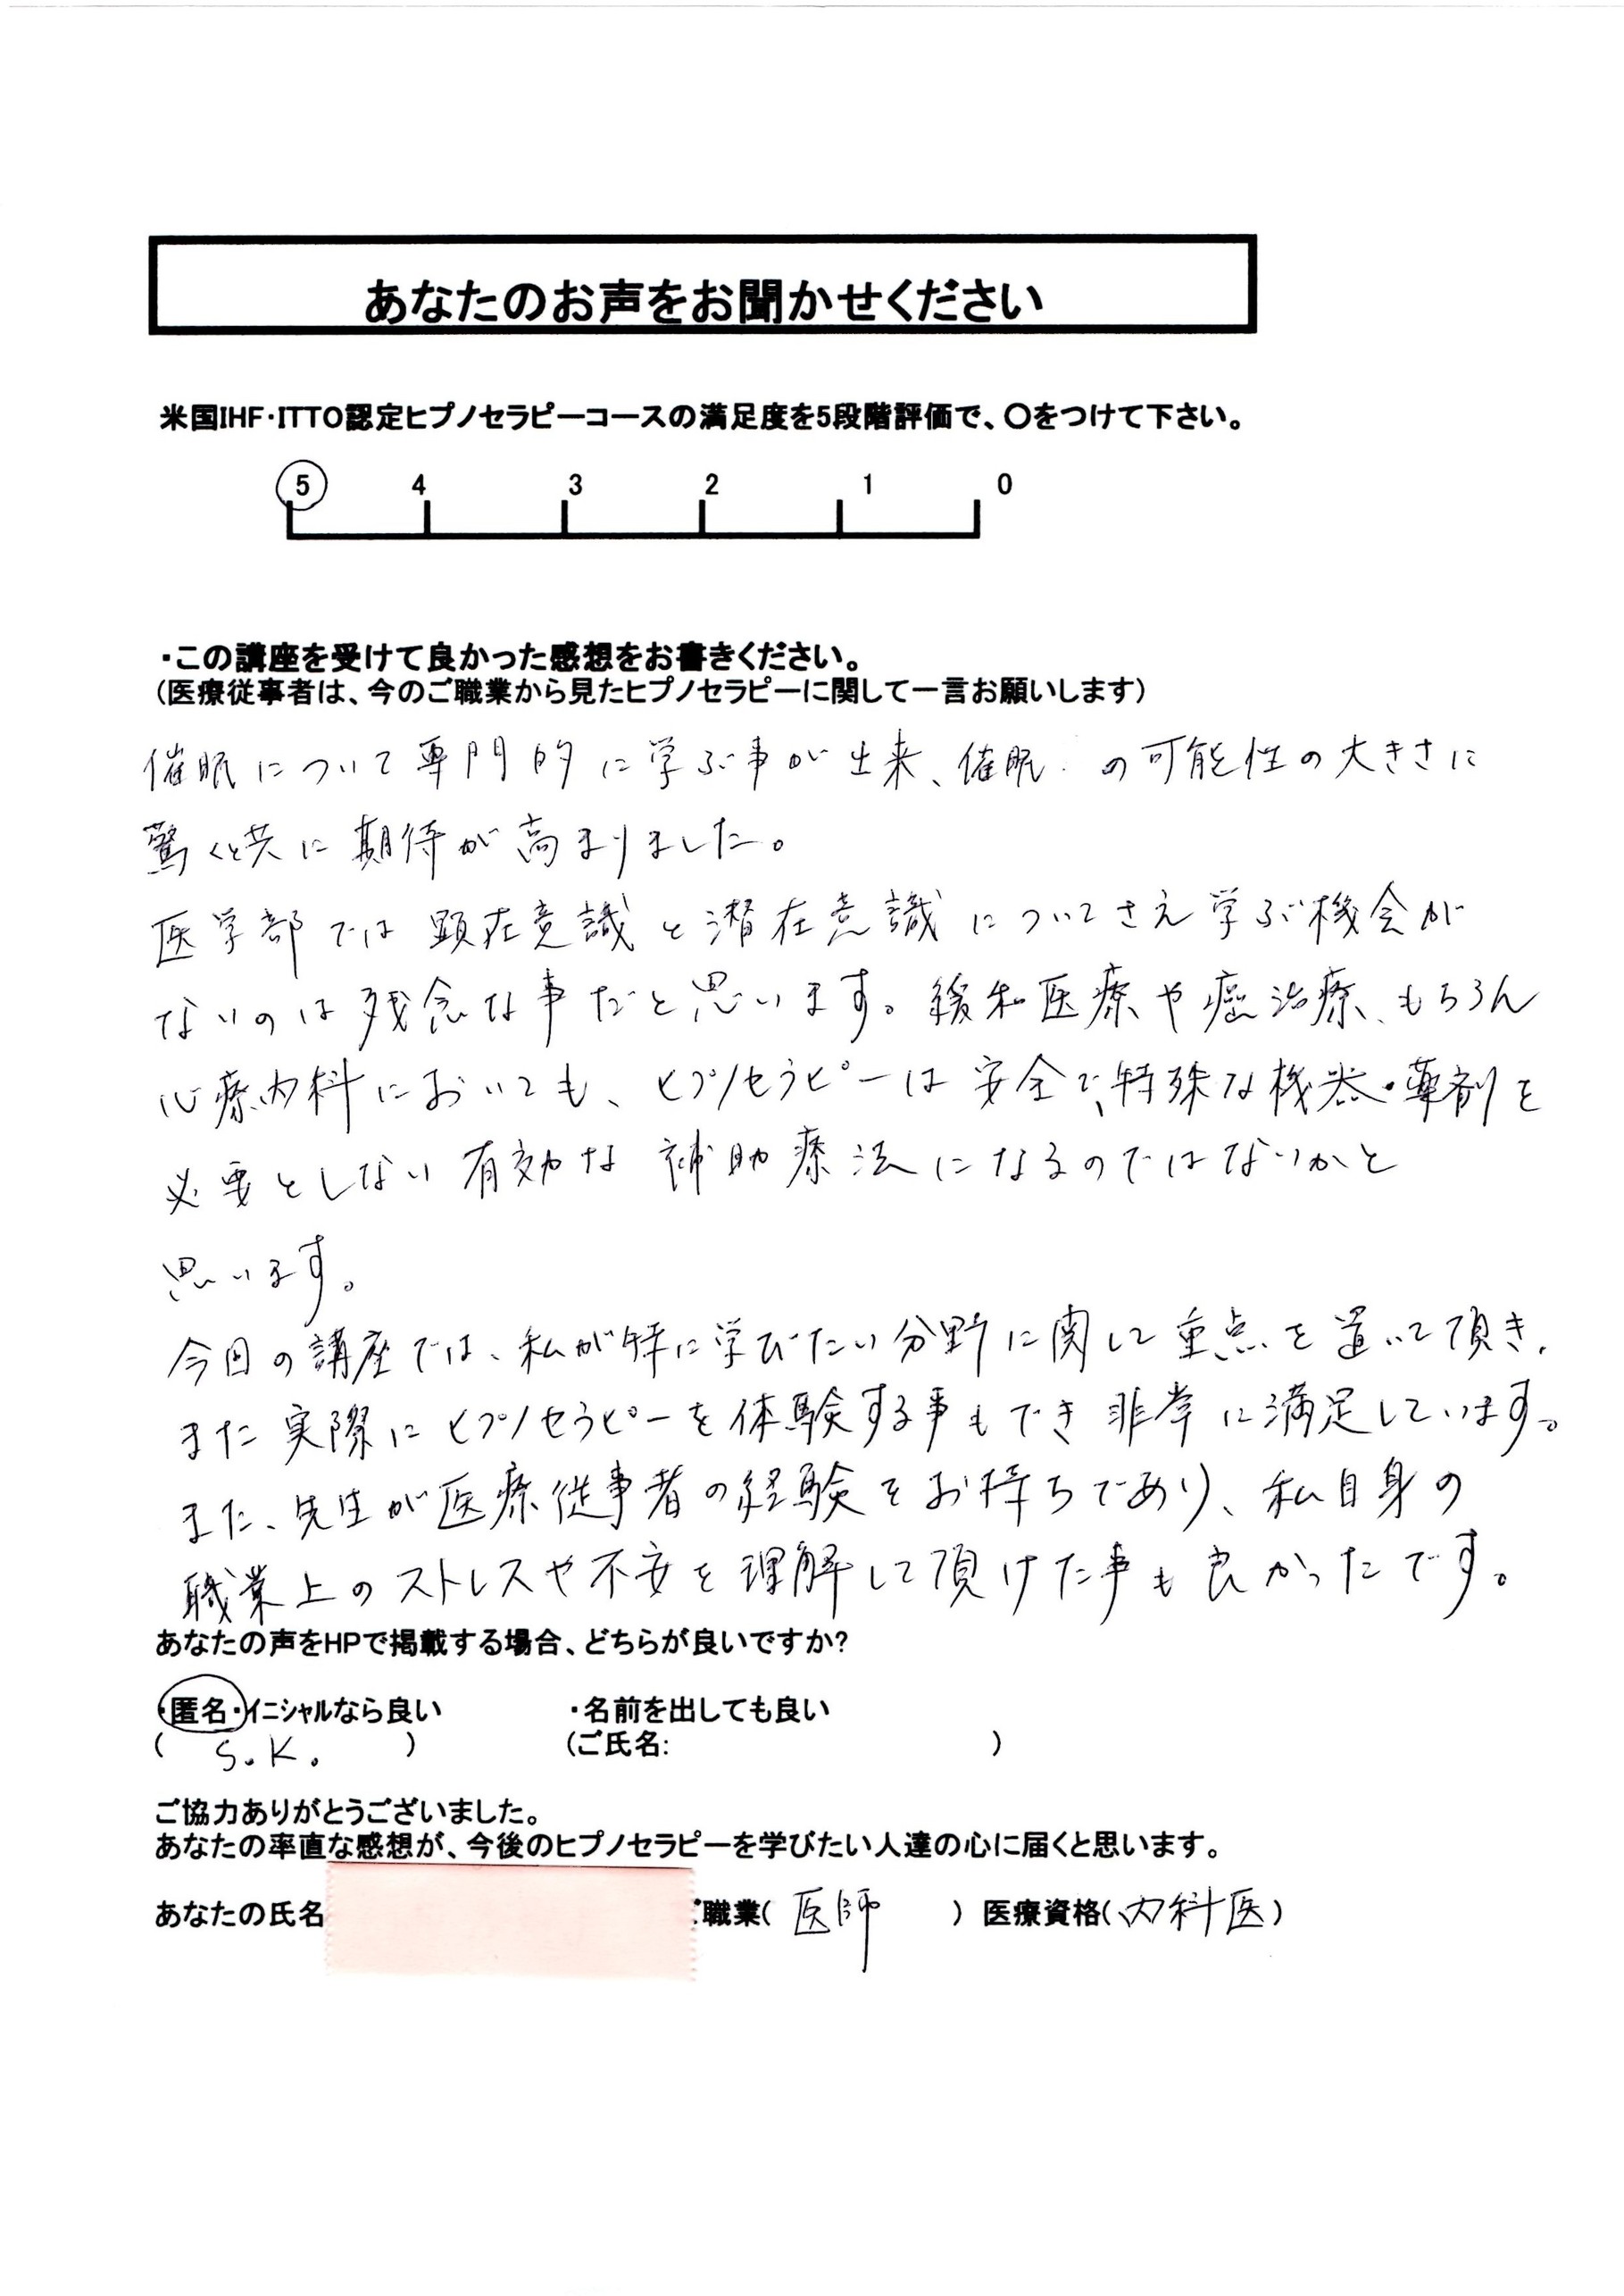 あなたのお声をお聞かせください
米国IHF・ITTO認定ヒプノセラピーコースの満足度を5段階評価で、〇をつけて下さい。
5 4 3 2 1 0
・この講座を受けて良かった感想をお書きください。
(医療従事者は、今のご職業から見たヒプノセラピーに関して一言お願いします)
催眠について専門的に学ぶ事が出来、催眠の可能性の大きさに
驚くと共に期待が高まりました。
医学部では顕在意識と潜在意識についてさえ学ぶ機会が
ないのは残念な事だと思います。緩和医療や癌治療、もちろん
心療内科においても、ヒプノセラピーは安全で、特殊な機器・薬剤を
必要としない有効な補助療法になるのではないかと
思います。
今回の講座では、私が特に学びたい分野に関して重点を置いて頂き、
また実際にヒプノセラピーを体験する事もでき非常に満足しています。
また、先生が医療従事者の経験をお持ちであり、私自身の
職業上のストレスや不安を理解して頂けた事も良かったです。
あなたの声をHPで掲載する場合、どちらが良いですか?
・匿名・イニシャルなら良い ・名前を出しても良い
( S.K. ) (ご氏名: )
ご協力ありがとうございました。
あなたの率直な感想が、今後のヒプノセラピーを学びたい人達の心に届くと思います。
あなたの氏名 ご職業( 医師 ) 医療資格(内科医)